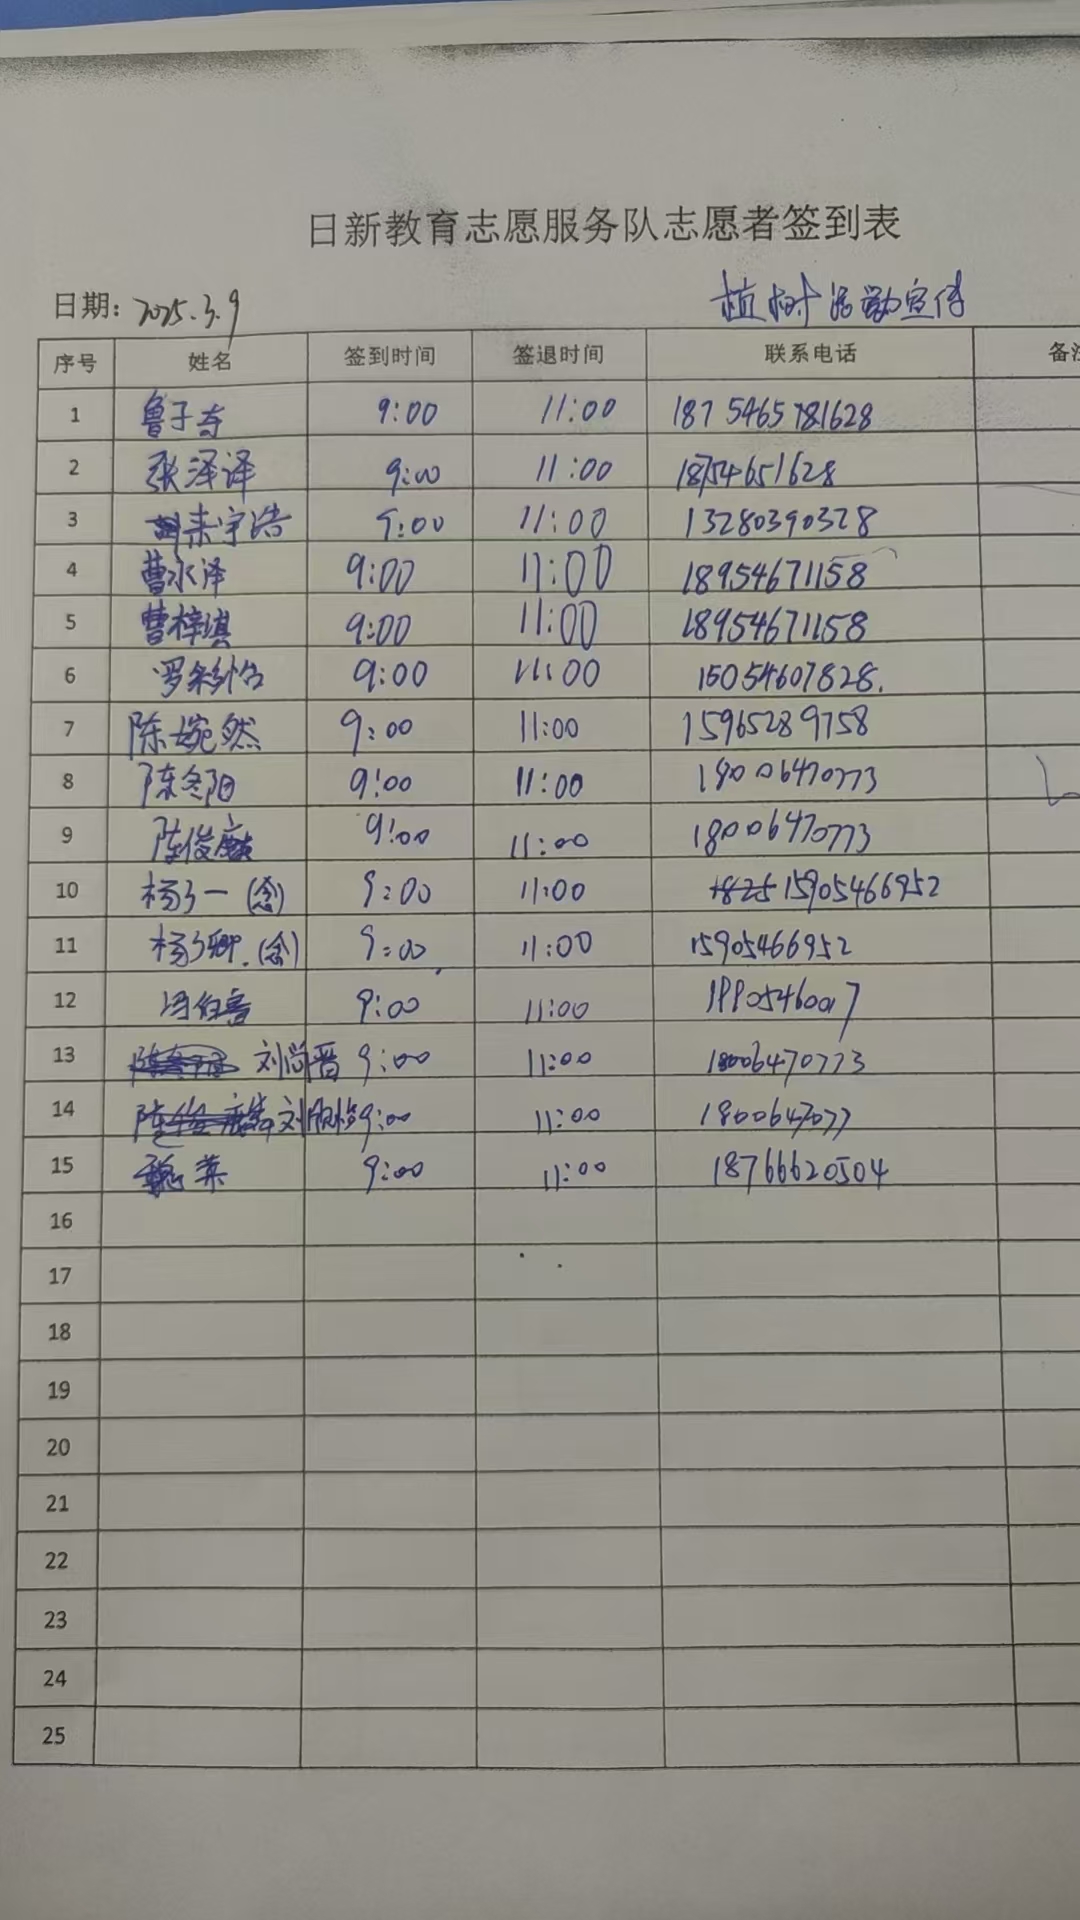 日新教育志愿服务队志愿者签到表
日期: 2025.3.9 植树活动宣传
序号 姓名 签到时间 签退时间 联系电话 备注
1 鲁子寺 9:00 11:00 187 5465781628
2 张泽译 9:00 11:00 18754651628
3 来宇浩 9:00 11:00 13280390328
4 曹永泽 9:00 11:00 18954671158
5 曹梓淇 9:00 11:00 18954671158
6 罗 9:00 11:00 15054607828.
7 陈婉然 9:00 11:00 15965289758
8 陈冬阳 9:00 11:00 18006470773
9 陈俊麟 9:00 11:00 18006470773
10 杨子一 (念) 9:00 11:00 15905466952
11 杨子卿.(念) 9:00 11:00 15905466952
12 冯伯喜 9:00 11:00 19905460017
13 刘尚晋 9:00 11:00 18006470773
14 刘欣怡 9:00 11:00 1800647077
15 魏英 9:00 11:00 18766620504
16
17
18
19
20
21
22
23
24
25